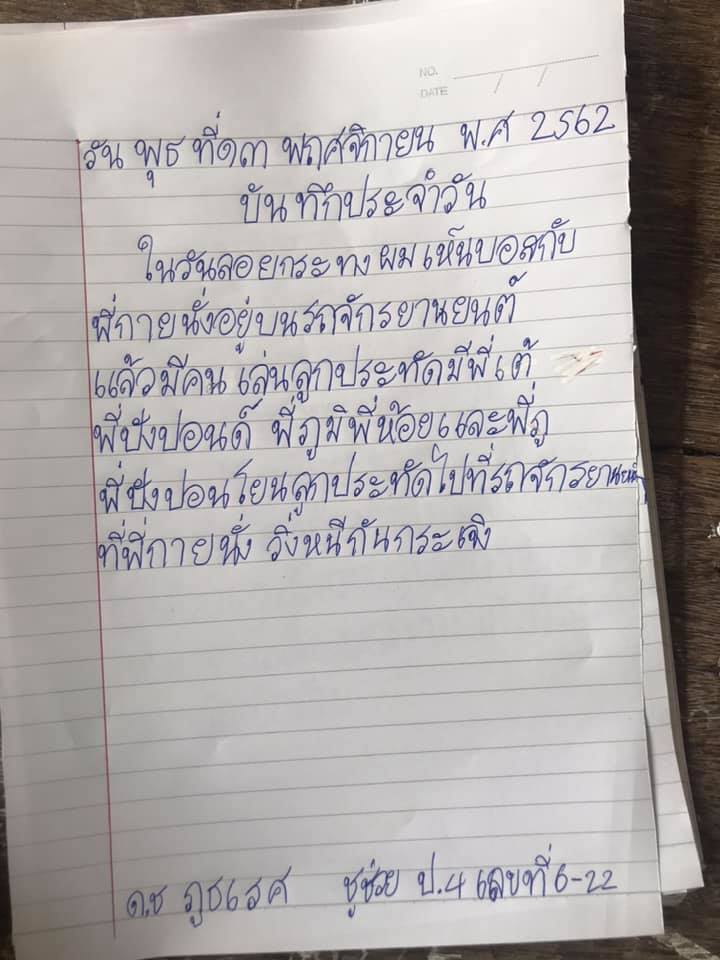 NO.
DATE / /
วัน พุธ ที่๑๓ พฤศจิกายน พ.ศ 2562
บันทึกประจำวัน
ในวันลอยกระทงผมเห็นบอสกับ
พี่กายนั่งอยู่บนรถจักรยานยนต์
แล้วมีคนเล่นลูกประทัดมีพี่เต้
พี่ปังปอนด์ พี่ภูมิพี่ห้อยและพี่ภู
พี่ปังปอนโยนลูกประทัดไปที่รถจักรยานยนต์
ที่พี่กายนั่ง วิ่งหนีกันกระเจิง
ด.ช ภูธเรศ ชูช่วย ป.4 เลขที่ 6-22